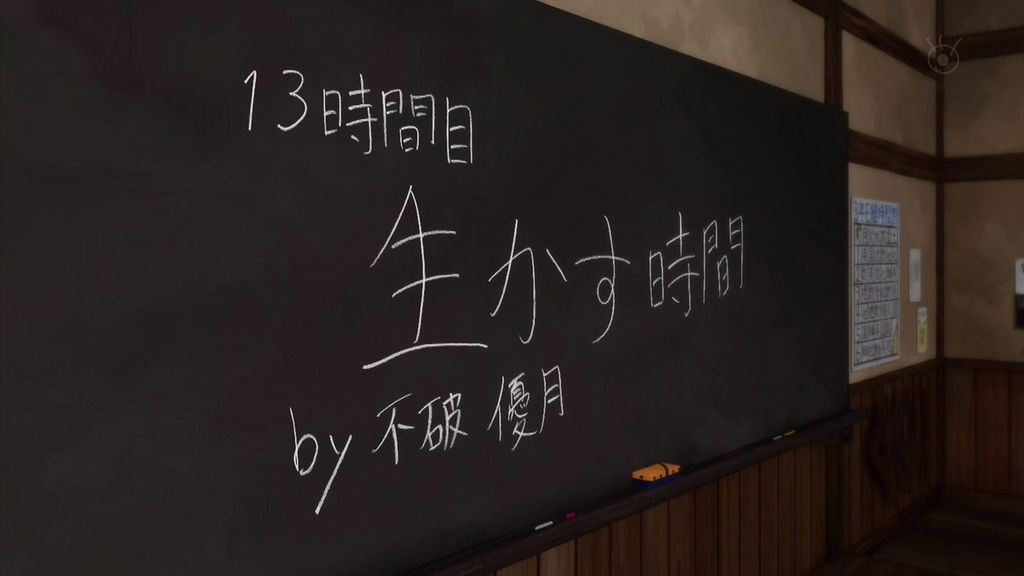 13時間目
生かす時間
by 不破 優月